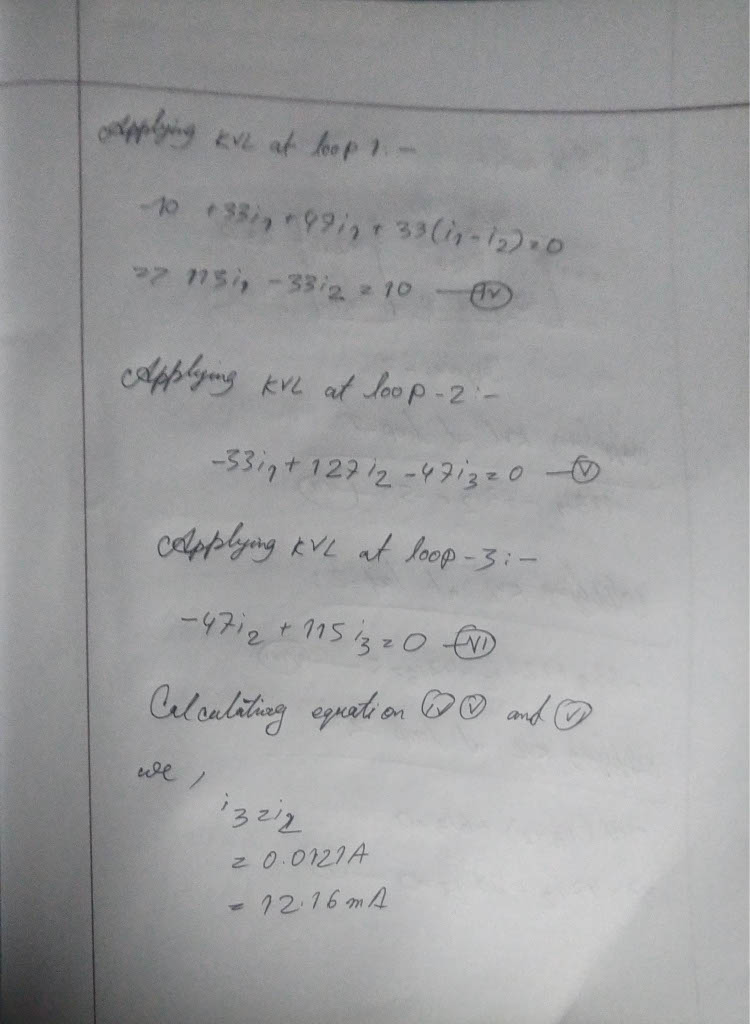 Applying KVL at loop 1:-
-10 + 33i₁ + 47i₁ + 33(i₁-i₂) = 0
=> 113i₁ - 33i₂ = 10 —(IV)
Applying KVL at loop-2:-
-33i₁ + 127i₂ - 47i₃ = 0 —(V)
Applying KVL at loop-3:-
-47i₂ + 115i₃ = 0 —(VI)
Calculating equation (IV) (V) and (VI)
we,
i₃ = i₂
= 0.0121A
= 12.16 mA